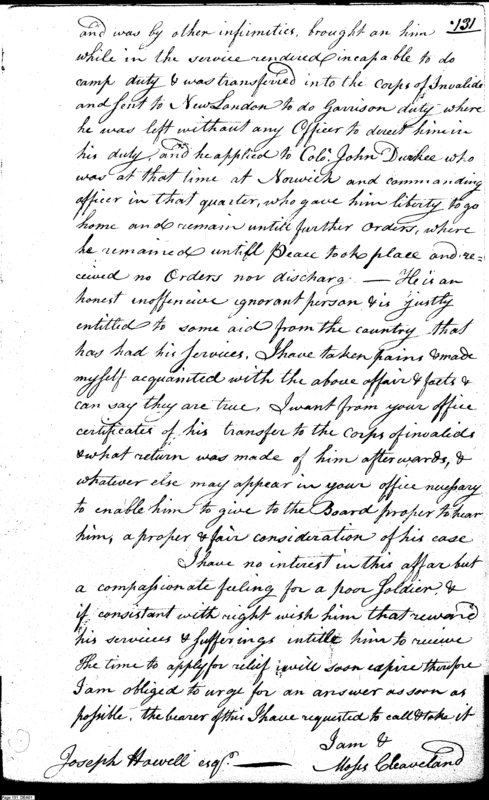 131
and was by other infirmities, brought on him
while in the service rendered incapable to do
camp duty & was transferred into the Corps of Invalids
and sent to New London to do Garrison duty where
he was left without any Officer to direct him in
his duty, and he applied to Colo. John Durkee who
was at that time at Norwich and commanding
officer in that quarter, who gave him liberty to go
home and remain untill further orders, where
he remained untill Peace took place and re=
ceived no Orders nor discharg. — He is an
honest inoffensive ignorant person & is justly
entitled to some aid from the country that
has had his services, I have taken pains & made
myself acquainted with the above affair & facts &
can say they are true, I want from your office
certificates of his transfer to the Corps of invalids
& what return was made of him afterwards, &
whatever else may appear in your office necessary
to enable him to give to the Board proper to hear
him, a proper & fair consideration of his case
I have no interest in this affar but
a compassionate feeling for a poor Soldier, &
if consistant with right wish him that reward
his services & sufferings intitle him to receive
The time to apply for relief will soon expire therefore
I am obliged to urge for an answer as soon as
possible, the bearer of this I have requested to call & take it
I am &
Joseph Howell esqr. — Moses Cleaveland